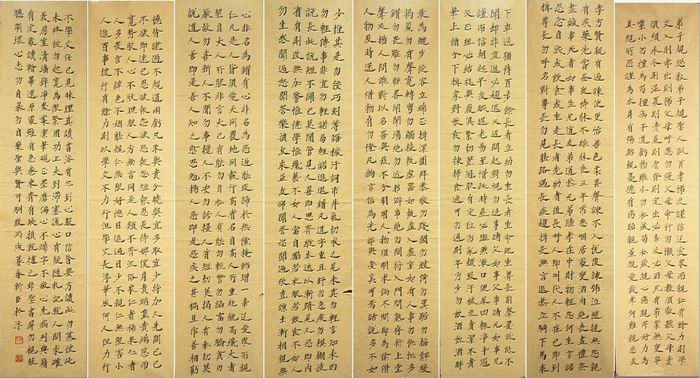 弟子規聖人訓首孝弟次謹信汎愛眾而親仁有餘力則學
文入則孝出則弟父母呼應勿緩父母命行勿懶父母教須敬聽父母責
須順承冬則溫夏則凊晨則省昏則定出必告反必面居有常業無變事
雖小勿擅為苟擅為子道虧物雖小勿私藏苟私藏親心傷親所好力為
具親所惡謹為去身有傷貽親憂德有傷貽親羞親愛我孝何難親惡我
孝方賢親有過諫使更怡吾色柔吾聲諫不入悅復諫號泣隨撻無怨親
有疾藥先嘗晝夜侍不離床喪三年常悲咽居處變酒肉絕喪盡禮祭
盡誠事死者如事生兄道友弟道恭兄弟睦孝在中財物輕怨何生言語
忍忿自泯或飲食或坐走長者先幼者後長呼人即代叫人不在己即到
稱尊長勿呼名對尊長勿見能路遇長疾趨揖長無言退恭立騎下馬乘
下車過猶待百步餘長者立幼勿坐長者坐命乃坐尊長前聲要低低不
聞卻非宜進必趨退必遲問起對視勿移事諸父如事父事諸兄如事兄
謹而信朝起早夜眠遲老易至惜此時晨必盥兼漱口便溺回輒淨手冠
必正紐必結襪與履俱緊切置冠服有定位勿亂頓致污穢衣貴潔不貴
華上循分下稱家對飲食勿揀擇食適可勿過則年方少勿飲酒飲酒醉
最為醜步從容立端正揖深圓拜恭敬勿踐閾勿跛倚勿箕踞勿搖髀緩
揭簾勿有聲寬轉彎勿觸棱執虛器如執盈入虛室如有人事勿忙忙多
錯勿畏難勿輕略鬥鬧場絕勿近邪僻事絕勿問將入門問孰存將上堂
聲必揚人問誰對以名吾與我不分明用人物須明求倘不問即為偷借
人物及時還人借物有勿慳凡出言信為先詐與妄奚可焉話說多不如
少惟其是勿佞巧刻薄語穢污詞市井氣切戒之見未真勿輕言知未的
勿輕傳事非宜勿輕諾苟輕諾進退錯凡道字重且舒勿急疾勿模糊彼
說長此說短不關己莫閒管見人善即思齊縱去遠以漸躋見人惡即內
省有則改無加警惟德學惟才藝不如人當自礪若衣服若飲食不如人
勿生慼聞過怒聞譽樂損友來益友卻聞譽恐聞過欣直諒士漸相親無
心非名為錯有心非名為惡過能改歸於無倘掩飾增一辜汎愛眾而親
仁凡是人皆須愛天同覆地同載行高者名自高人所重非貌高才大者
望自大人所服非言大己有能勿自私人有能勿輕訾勿諂富勿驕貧勿
厭故勿喜新人不閒勿事攪人不安勿話擾人有短切莫揭人有私切莫
說道人善即是善人知之愈思勉揚人惡即是惡疾之甚禍且作善相勸
德皆建過不規道兩虧凡取與貴分曉與宜多取宜少將加人先問己己
不欲即速已恩欲報怨欲忘報怨短報恩長待婢僕身貴端雖貴端慈而
寬勢服人心不然理服人方無言同是人類不齊流俗眾仁者稀果仁者
人多畏言不諱色不媚能親仁無限好德日進過日少不親仁無限害小
人進百事壞行有餘力則以學文不力行但學文長浮華成何人但力行
不學文任己見昧理真讀書法有三到心眼口信皆要方讀此勿慕彼此
未終彼勿起寬為限緊用功工夫到滯塞通心有疑隨札記就人問求確
義房室清牆壁淨几案潔筆硯正墨磨偏心不端字不敬心先病列典籍
有定處讀看畢還原處雖有急卷束齊有缺損就補之非聖書屏勿視蔽
聰明壞心志勿自暴勿自棄聖與賢可馴致丙戌